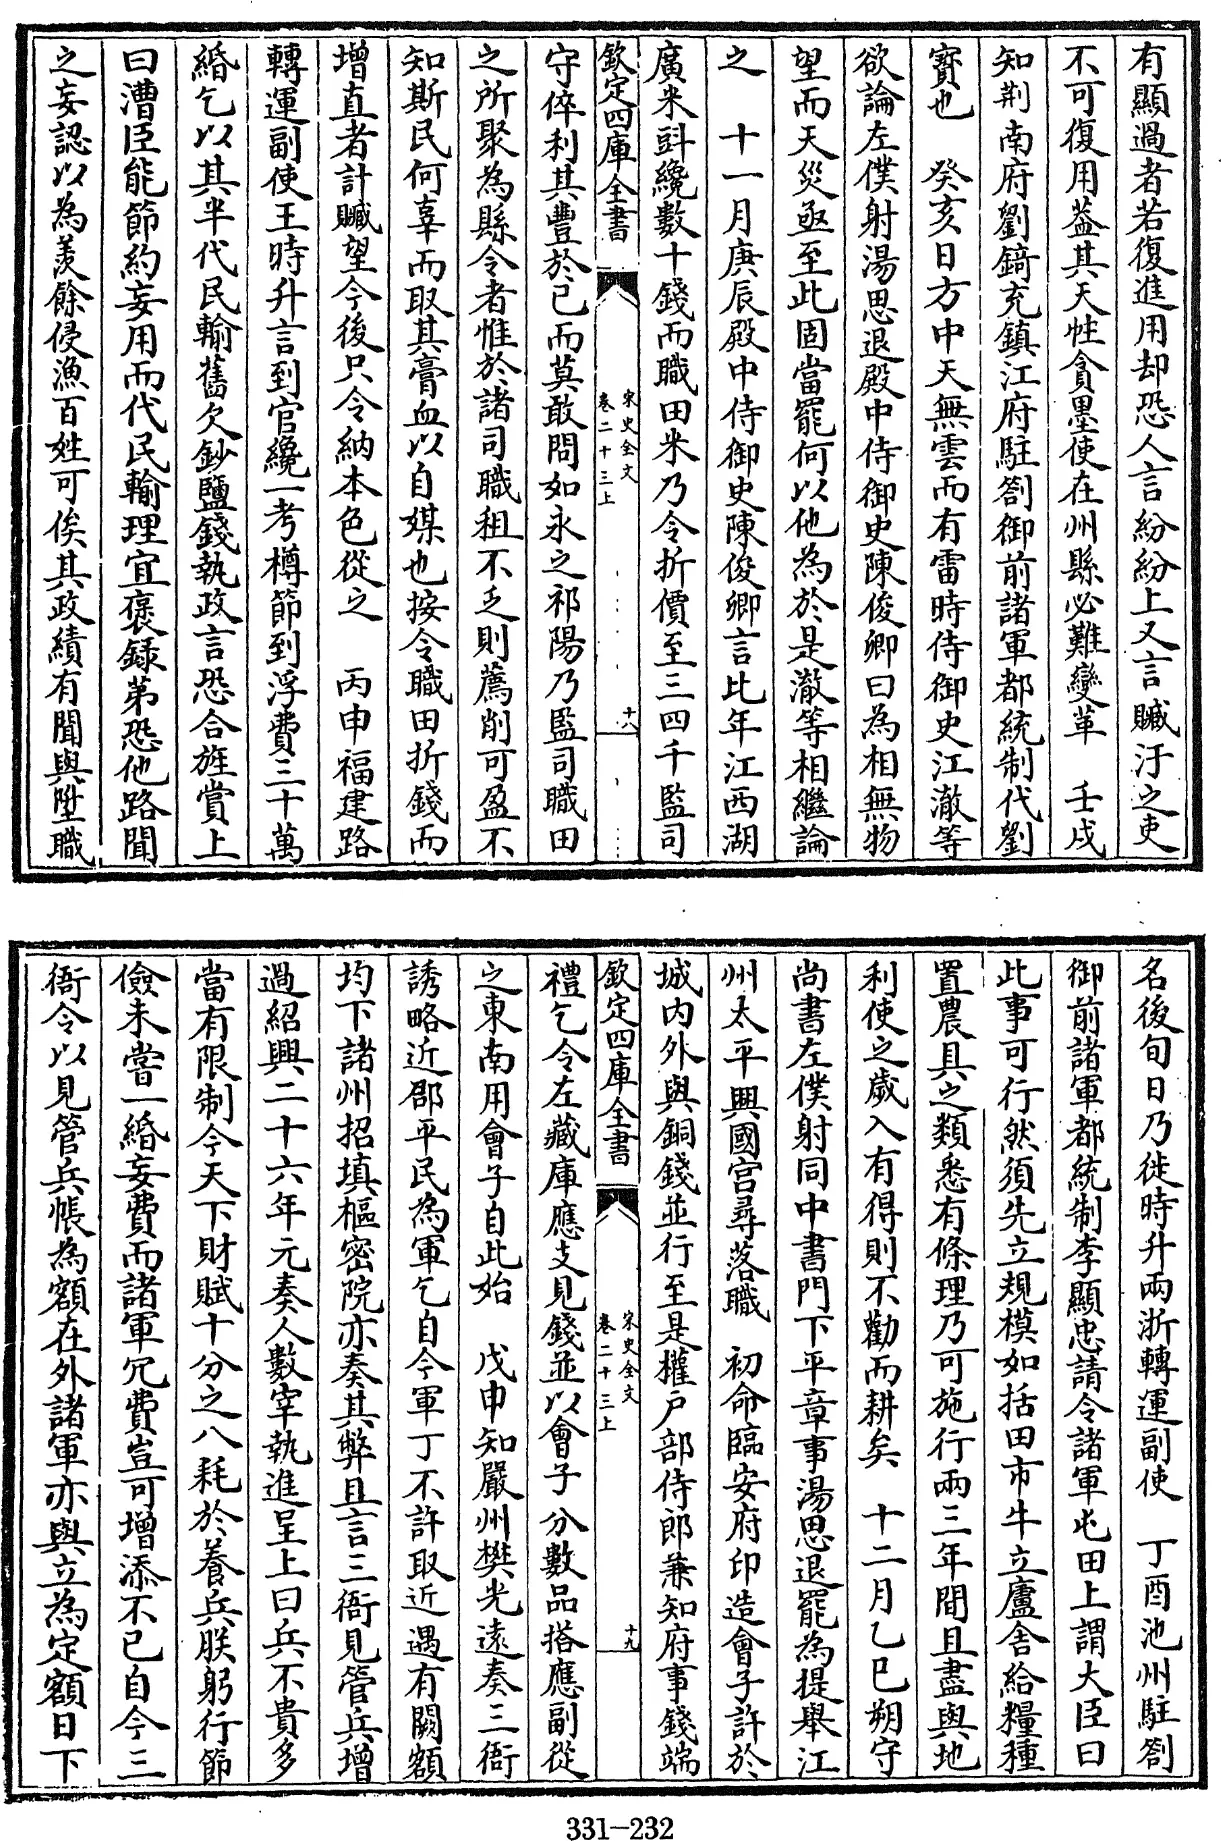 有顯過者若復進用却恐人言紛紛上又言贓汙之吏
不可復用蓋其天性貪墨使在州縣必難變革　壬戌
知荆南府劉錡充鎮江府駐劄御前諸軍都統制代劉
寶也　癸亥日方中天無雲而有雷時侍御史江澈等
欲論左僕射湯思退殿中侍御史陳俊卿曰為相無物
望而天災亟至此固當罷何以他為於是澈等相繼論
之　十一月庚辰殿中侍御史陳俊卿言比年江西湖
廣米斛纔數十錢而職田米乃令折價至三四千監司
欽定四庫全書
宋史全文
卷二十三上
十八
守倅利其豐於己而莫敢問如永之祁陽乃監司職田
之所聚為縣令者惟於諸司職租不乏則薦削可盈不
知斯民何辜而取其膏血以自媒也按令職田折錢而
增直者計贓望今後只令納本色從之　丙申福建路
轉運副使王時升言到官纔一考樽節到浮費三十萬
緡乞以其半代民輸舊欠鈔鹽錢執政言恐合旌賞上
曰漕臣能節約妄用而代民輸理宜褒錄第恐他路聞
之妄認以為羨餘侵漁百姓可俟其政績有聞與陞職
名後旬日乃徙時升兩浙轉運副使　丁酉池州駐劄
御前諸軍都統制李顯忠請令諸軍屯田上謂大臣曰
此事可行然須先立規模如括田市牛立廬舍給糧種
置農具之類悉有條理乃可施行兩三年間且盡與地
利使之歲入有得則不勸而耕矣　十二月乙巳朔守
尚書左僕射同中書門下平章事湯思退罷為提舉江
州太平興國宮尋落職　初命臨安府印造會子許於
城內外與銅錢並行至是權戶部侍郎兼知府事錢端
欽定四庫全書
宋史全文
卷二十三上
十九
禮乞令左藏庫應支見錢並以會子分數品搭應副從
之東南用會子自此始　戊申知嚴州樊光遠奏三衙
誘略近郡平民為軍乞自今軍丁不許取近遇有闕額
均下諸州招填樞密院亦奏其弊且言三衙見管兵增
過紹興二十六年元奏人數宰執進呈上曰兵不貴多
當有限制今天下財賦十分之八耗於養兵朕躬行節
儉未嘗一緡妄費而諸軍冗費豈可增添不已自今三
衙令以見管兵帳為額在外諸軍亦與立為定額日下
331-232